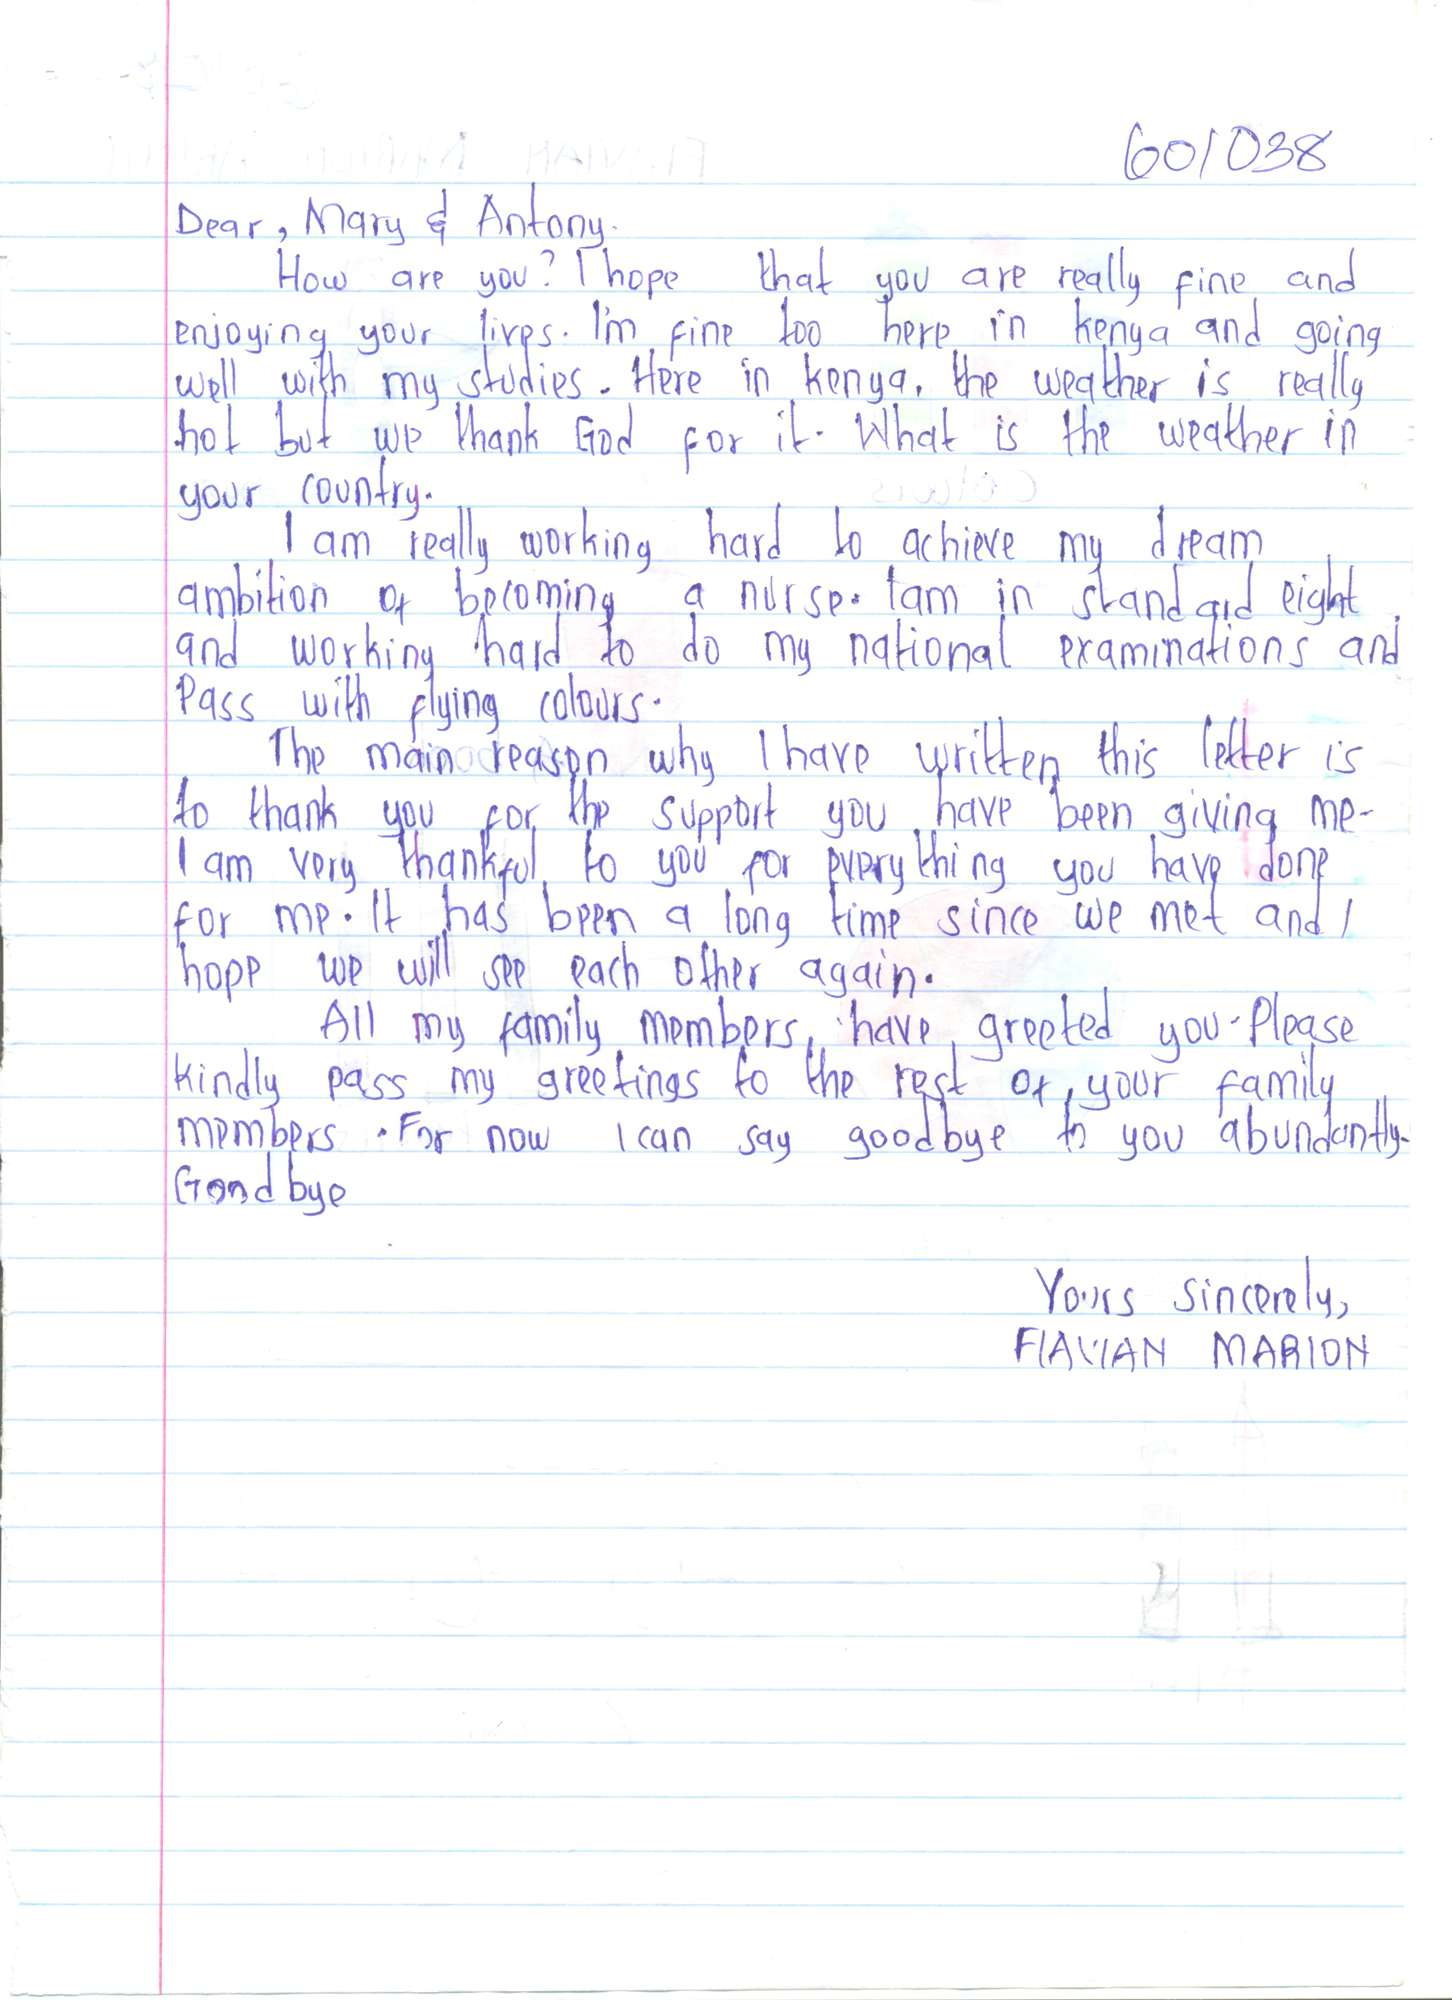 601038
Dear, Mary & Antony.
How are you? I hope that you are really fine and
enjoying your lives. I'm fine too here in kenya and going
well with my studies. Here in kenya, the weather is really
hot but we thank God for it. What is the weather in
your country.
I am really working hard to achieve my dream
ambition of becoming a nurse. Iam in standard eight
and working hard to do my national examinations and
Pass with flying colours.
The main reason why I have written this letter is
to thank you for the support you have been giving me.
I am very thankful to you for everything you have done
for me. It has been a long time since we met and I
hope we will see each other again.
All my family members, have greeted you. Please
kindly pass my greetings to the rest of your family
members. For now I can say goodbye to you abundantly.
Goodbye
Yours Sincerely,
FLAVIAN MARION